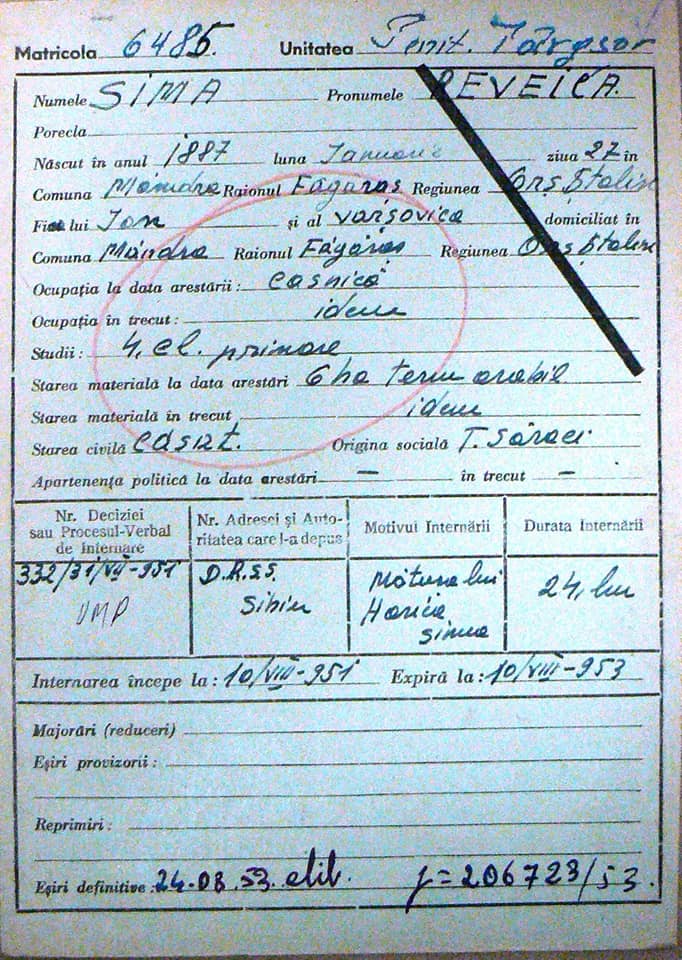 Matricola 6485. Unitatea Penit. Târgșor
Numele SIMA Pronumele REVEICA.
Porecla
Născut în anul 1887 luna Ianuarie ziua 27 în
Comuna Mândra Raionul Făgăraș Regiunea Orș Stalin
lui Ion și al varșovica domiciliat în
Comuna Mândra Raionul Făgăraș Regiunea Orș Stalin
Ocupația la data arestării : casnică
Ocupația în trecut : idem
Studii : 4, cl. primare
Starea materială la data arestării 6 ha teren arabil
Starea materială în trecut idem
Starea civilă casat. Origina socială Ț. Săraci
Apartenența politică la data arestării — în trecut —
Nr. Deciziei sau Procesul-Verbal de Internare
Nr. Adresei și Auto-ritatea care l-a depus
Motivul Internării
Durata Internării
332/31/VII-951 D.R.SS. Mătușa lui 24, luni
UMP Sibiu Horia
Sima
Internarea începe la : 10/VIII-951 Expiră la : 10/VIII-953
Majorări (reduceri)
Eșiri provizorii :
Reprimiri :
Eșiri definitive : 24.08.53. elib. = 206723/53.